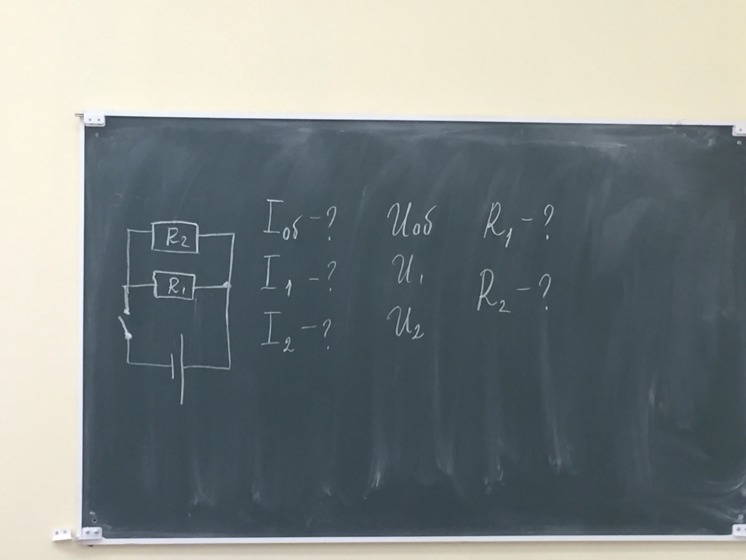 R₂
R₁
I об - ? U об R₁ - ?
I₁ - ? U₁
R₂ - ?
I₂ - ? U₂